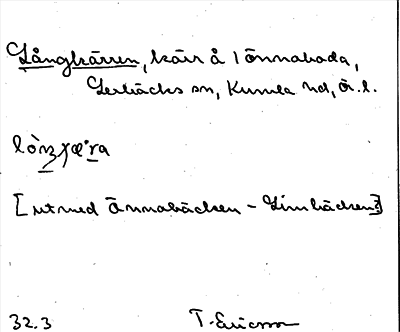 Långkärren, kärr å 1 Önnaboda,
Lerbäcks sn, Kumla hd, Ö.l.
[utmed Önnabäcken - Limbäcken?]
32.3 T. Ericsson